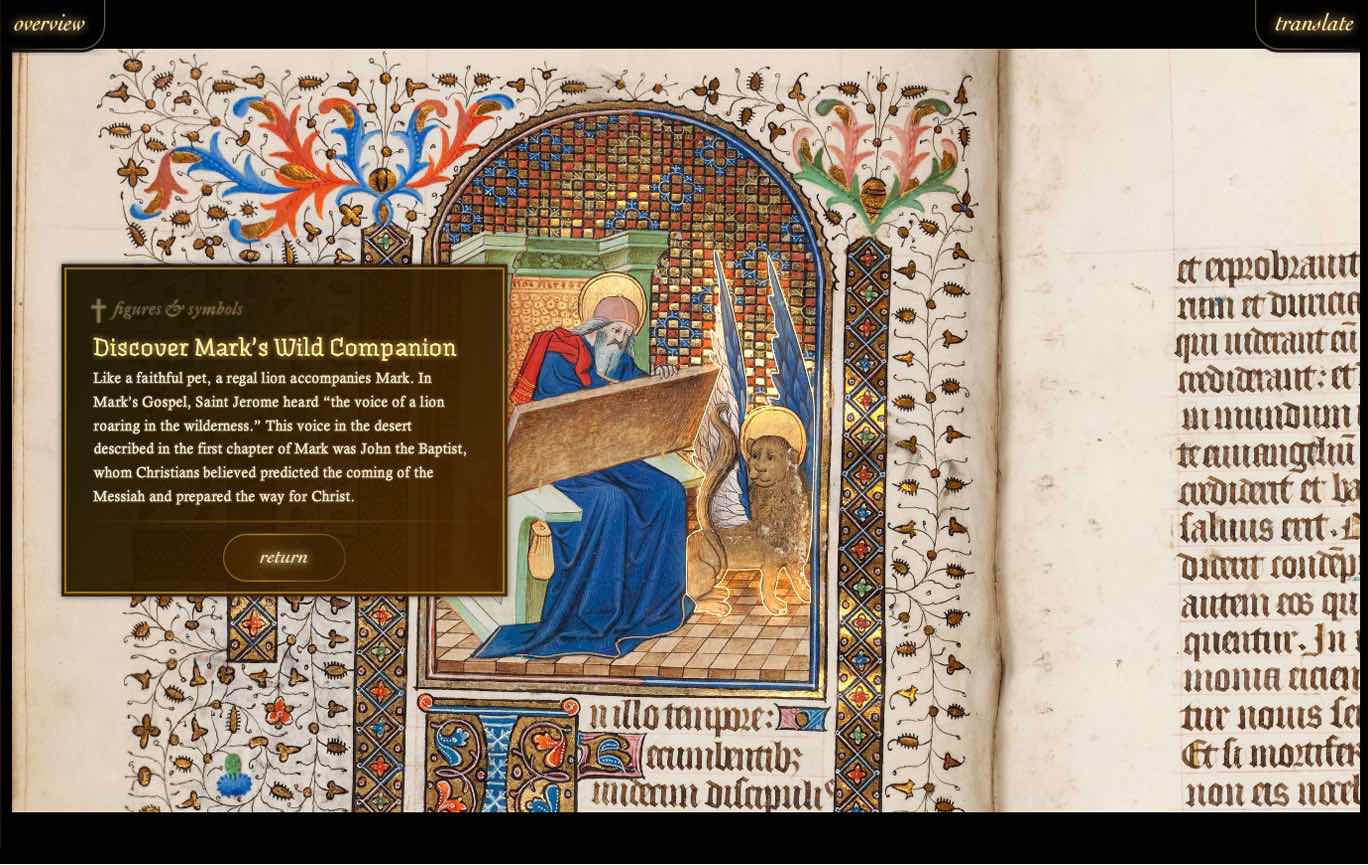 overview
translate
figures & symbols
Discover Mark's Wild Companion
Like a faithful pet, a regal lion accompanies Mark. In
Mark's Gospel, Saint Jerome heard “the voice of a lion
roaring in the wilderness.” This voice in the desert
described in the first chapter of Mark was John the Baptist,
whom Christians believed predicted the coming of the
Messiah and prepared the way for Christ.
return
In illo tempore:
Recumbentibꝫ
undecim discipulis
et exprobrauit
rum et duricia
qui uiderant eū
crediderant: et
in mundum
te euuangeliū
crediderit et ba
saluus erit.
autem eos qui
quentur. In
monia eicien
tur nouis
Et si mortifer
non eis noce